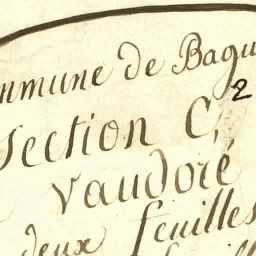 mmune de Bagu
Section C, 2
Vaudoré
deux feuilles